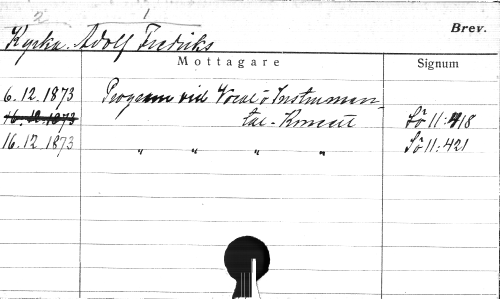 2 1
Kyrka. Adolf Fredriks
Brev.
Mottagare Signum
6.12.1873 Program vid Vocal o Instrumen-
16.12.1873 tal-Konsert Sö 11:418
16.12.1873 " " " " Sö 11:421